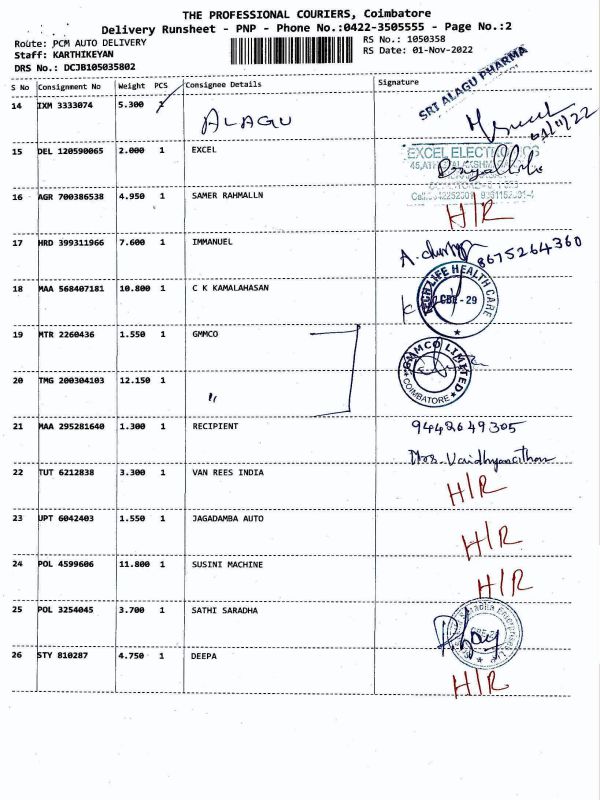 THE PROFESSIONAL COURIERS, Coimbatore
Delivery Runsheet - PNP - Phone No.:0422-3505555 - Page No.:2
Route: PCM AUTO DELIVERY
RS No.: 1050358
Staff: KARTHIKEYAN
RS Date: 01-Nov-2022
DRS No.: DCJB105035802
S No Consignment No Weight PCS Consignee Details Signature
14 IXM 3333074 5.300 1 ALAGU SRI ALAGU PHARMA
01/11/22
15 DEL 120590065 2.000 1 EXCEL EXCEL ELECTRONICS
16 AGR 700386538 4.950 1 SAMER RAHMALLN
H/R
17 HRD 399311966 7.600 1 IMMANUEL 8675264360
18 MAA 568407181 10.800 1 C K KAMALAHASAN TECH LIFE HEALTH CARE
CBE - 29
19 MTR 2260436 1.550 1 GMMCO GMMCO LIMITED
COIMBATORE
20 TMG 200304103 12.150 1 "
21 MAA 295281640 1.300 1 RECIPIENT 9442649305
Mrs. Vaidhyanathan
22 TUT 6212838 3.300 1 VAN REES INDIA H/R
23 UPT 6042403 1.550 1 JAGADAMBA AUTO H/R
24 POL 4599606 11.800 1 SUSINI MACHINE H/R
25 POL 3254045 3.700 1 SATHI SARADHA
26 STY 810287 4.750 1 DEEPA H/R